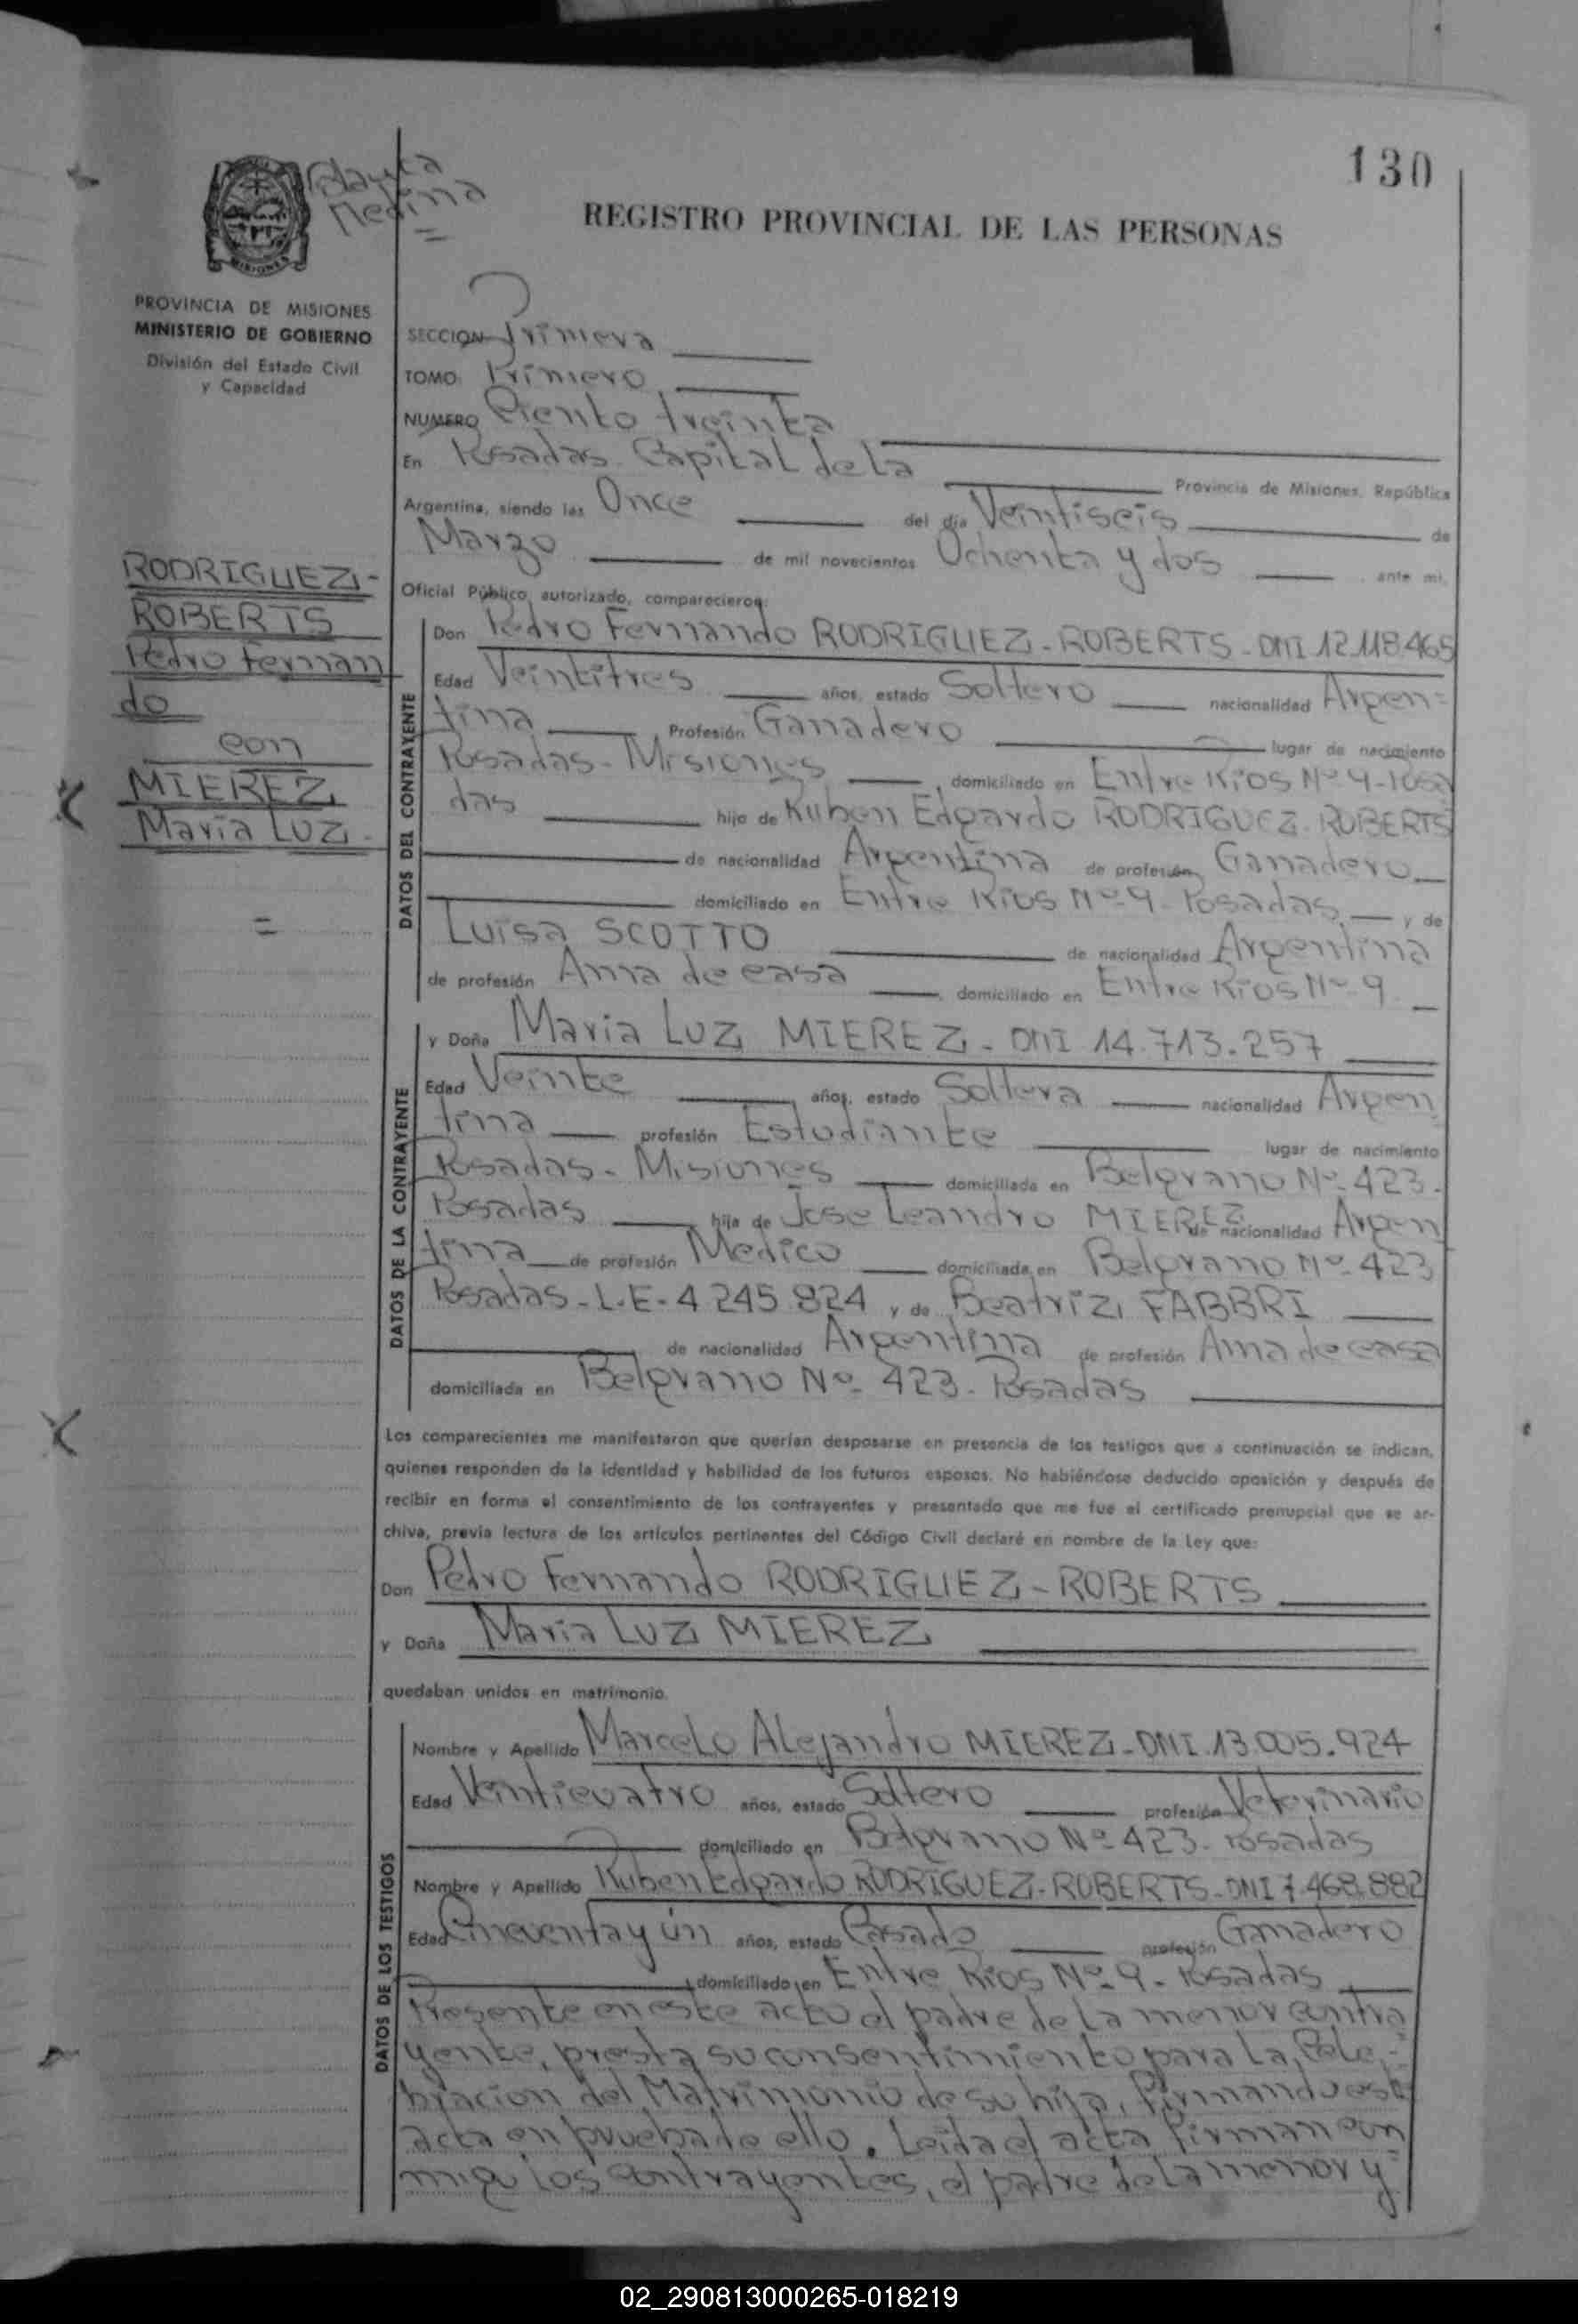 130
Blanca
Medina
REGISTRO PROVINCIAL DE LAS PERSONAS
MISIONES
PROVINCIA DE MISIONES
MINISTERIO DE GOBIERNO
División del Estado Civil
y Capacidad
SECCION Primera
TOMO: Primero
NUMERO Ciento treinta
En Posadas Capital de La Provincia de Misiones, República
Argentina, siendo las Once del día Veintiseis de
Marzo de mil novecientos Ochenta y dos ante mi,
Oficial Público autorizado, comparecieron:
RODRIGUEZ-
ROBERTS
Pedro Fernan
do
con
MIEREZ
Maria LUZ.
=
DATOS DEL CONTRAYENTE
Don Pedro Fernando RODRIGUEZ-ROBERTS-DNI 12.118.465
Edad Veintitres años, estado Soltero nacionalidad Argen=
tina Profesión Ganadero lugar de nacimiento
Posadas-Misiones, domiciliado en Entre Rios Nº 9-Posa
das hijo de Ruben Edgardo RODRIGUEZ-ROBERTS
de nacionalidad Argentina de profesión Ganadero
domiciliado en Entre Rios Nº-9 Posadas y de
Luisa SCOTTO de nacionalidad Argentina
de profesión Ama de casa, domiciliado en Entre Rios Nº-9
DATOS DE LA CONTRAYENTE
y Doña Maria LUZ MIEREZ-DNI 14.713.257
Edad Veinte años, estado Soltera nacionalidad Argen
tina profesión Estudiante lugar de nacimiento
Posadas-Misiones domiciliada en Belgrano Nº-423.
Posadas hija de Jose Leandro MIEREZ de nacionalidad Argen
tina de profesión Medico domiciliada en Belgrano Nº-423
Posadas-L.E-4.245.824 y de Beatriz FABBRI
de nacionalidad Argentina de profesión Ama de casa
domiciliada en Belgrano Nº-423-Posadas
Los comparecientes me manifestaron que querían desposarse en presencia de los testigos que a continuación se indican,
quienes responden de la identidad y habilidad de los futuros esposos. No habiéndose deducido oposición y después de
recibir en forma el consentimiento de los contrayentes y presentado que me fue el certificado prenupcial que se ar-
chiva, previa lectura de los artículos pertinentes del Código Civil declaré en nombre de la Ley que:
Don Pedro Fernando RODRIGUEZ-ROBERTS
y Doña Maria LUZ MIEREZ
quedaban unidos en matrimonio.
DATOS DE LOS TESTIGOS
Nombre y Apellido Marcelo Alejandro MIEREZ-DNI.13.005.924
Edad Veinticuatro años, estado Soltero profesión Veterinario
domiciliado en Belgrano Nº-423-Posadas
Nombre y Apellido Ruben Edgardo RODRIGUEZ-ROBERTS-DNI 7.468.882
Edad Cincuenta y ún años, estado Casado profesión Ganadero
domiciliado en Entre Rios Nº-9-Posadas
Presente en este acto el padre de La menor contra
yente, presta su consentimiento para La Cele=
bracion del Matrimonio de su hija, firmando este
acta en prueba de ello. Leida el acta firman con
migo los contrayentes, el padre de La menor y=
02_290813000265-018219